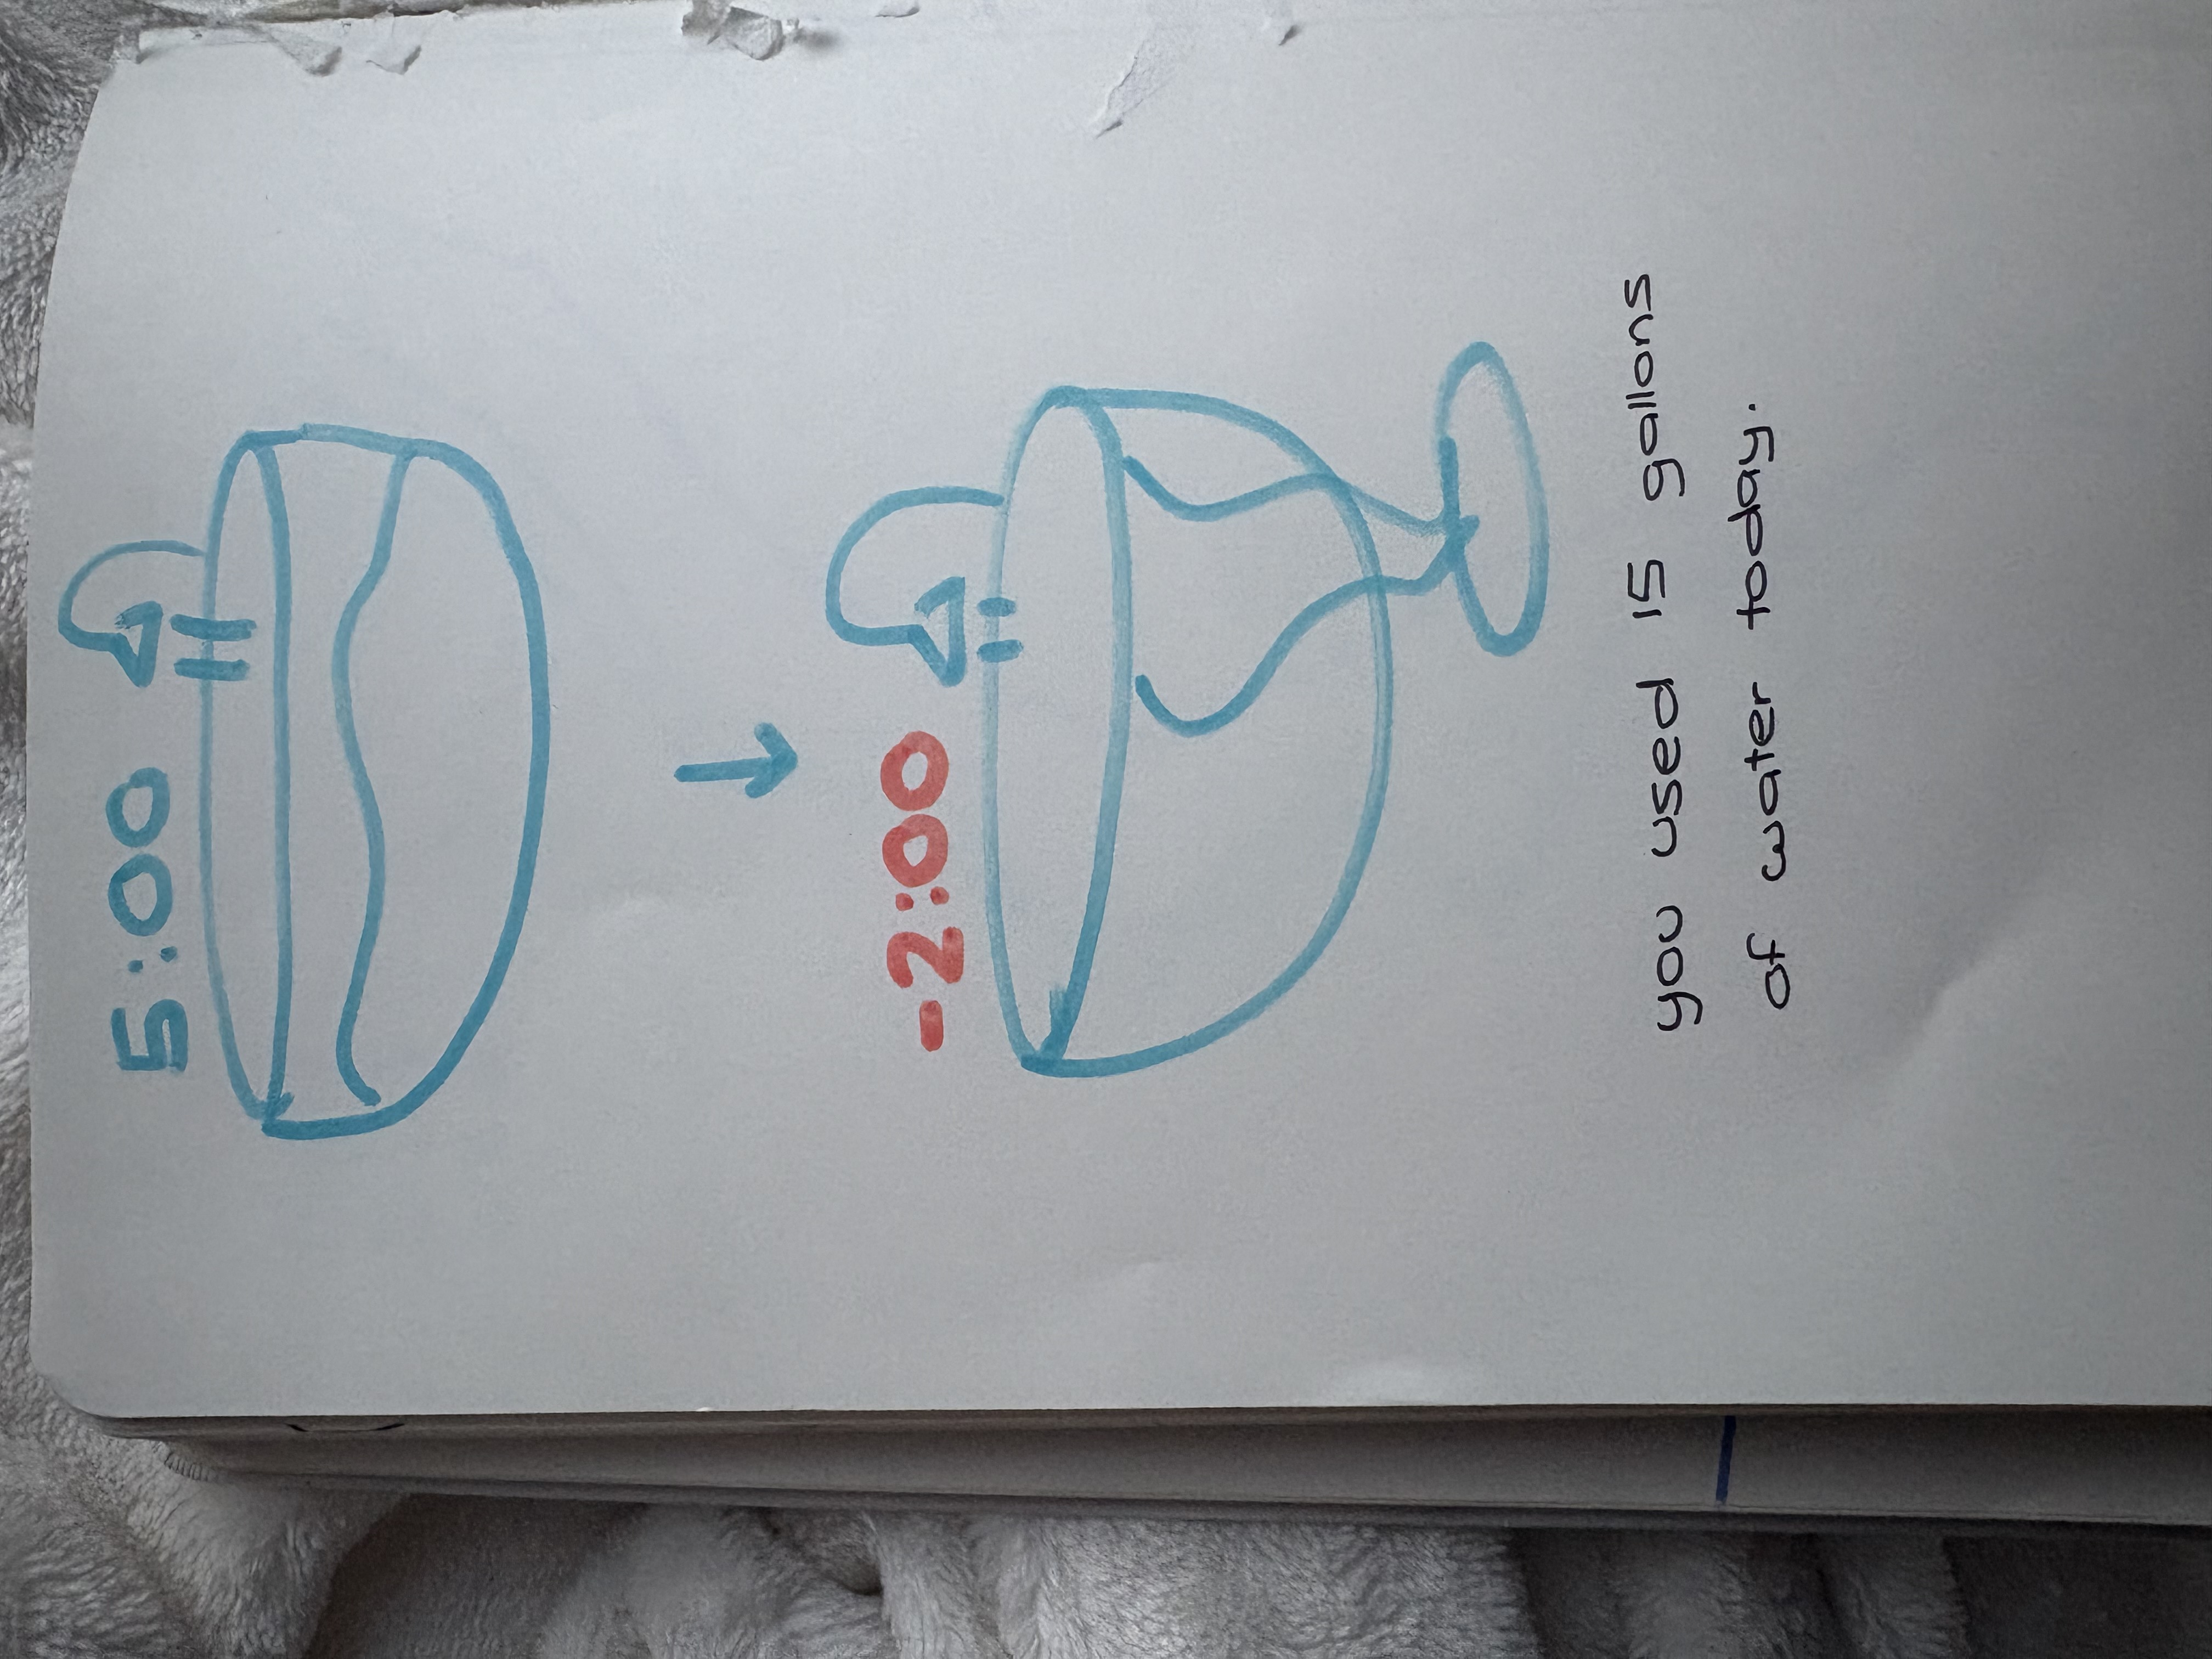 5:00
-2:00
you used 15 gallons
of water today.